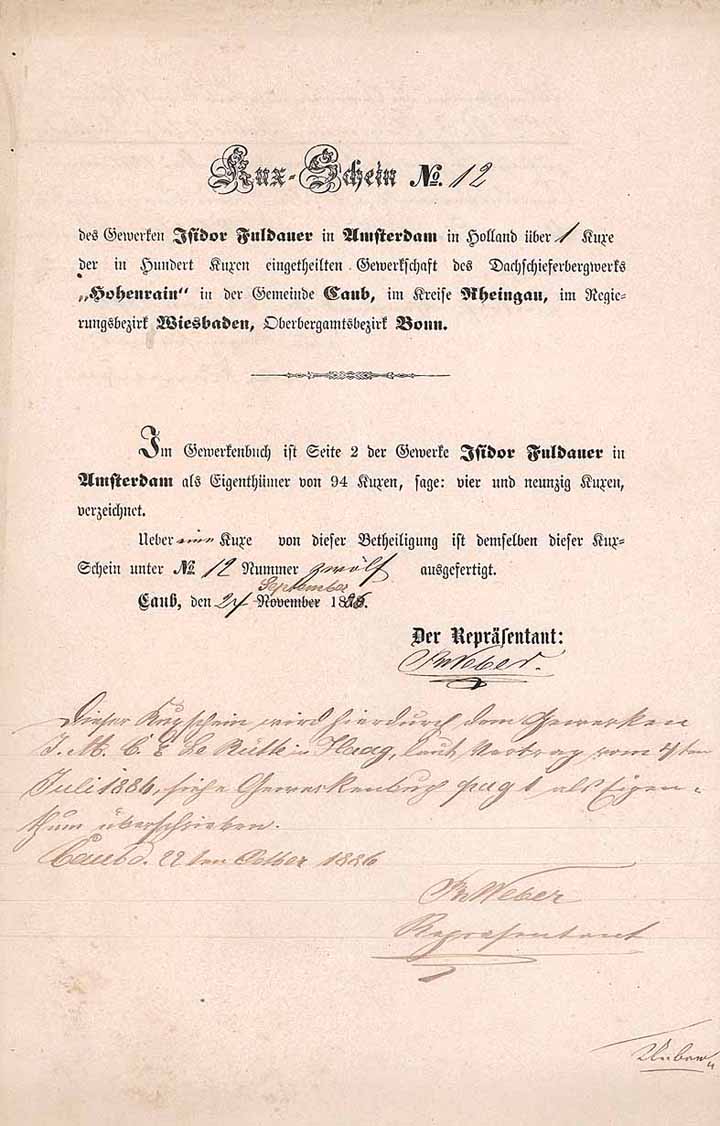 Kux-Schein No. 12
des Gewerken Isidor Fuldauer in Amsterdam in Holland über 1 Kuxe
der in Hundert Kuxen eingetheilten Gewerkschaft des Dachschieferbergwerks
„Hohenrain“ in der Gemeinde Caub, im Kreise Rheingau, im Regie-
rungsbezirk Wiesbaden, Oberbergamtsbezirk Bonn.
Im Gewerkenbuch ist Seite 2 der Gewerke Isidor Fuldauer in
Amsterdam als Eigenthümer von 94 Kuxen, sage: vier und neunzig Kuxen,
verzeichnet.
Ueber eine Kuxe von dieser Betheiligung ist demselben dieser Kux-
Schein unter No 12 Nummer zwölf ausgefertigt.
September
Caub, den 24 November 1886.
Der Repräsentant:
Weber.
Dieser Kuxschein wird hierdurch dem Gewerken
J. M. C. E. Le Rütte in Haag, laut Vertrag vom 4ten
Juli 1886, siehe Gewerkenbuch pag 1 als Eigen-
thum überschrieben.
Caub d. 22ten October 1886
Weber
Repräsentant